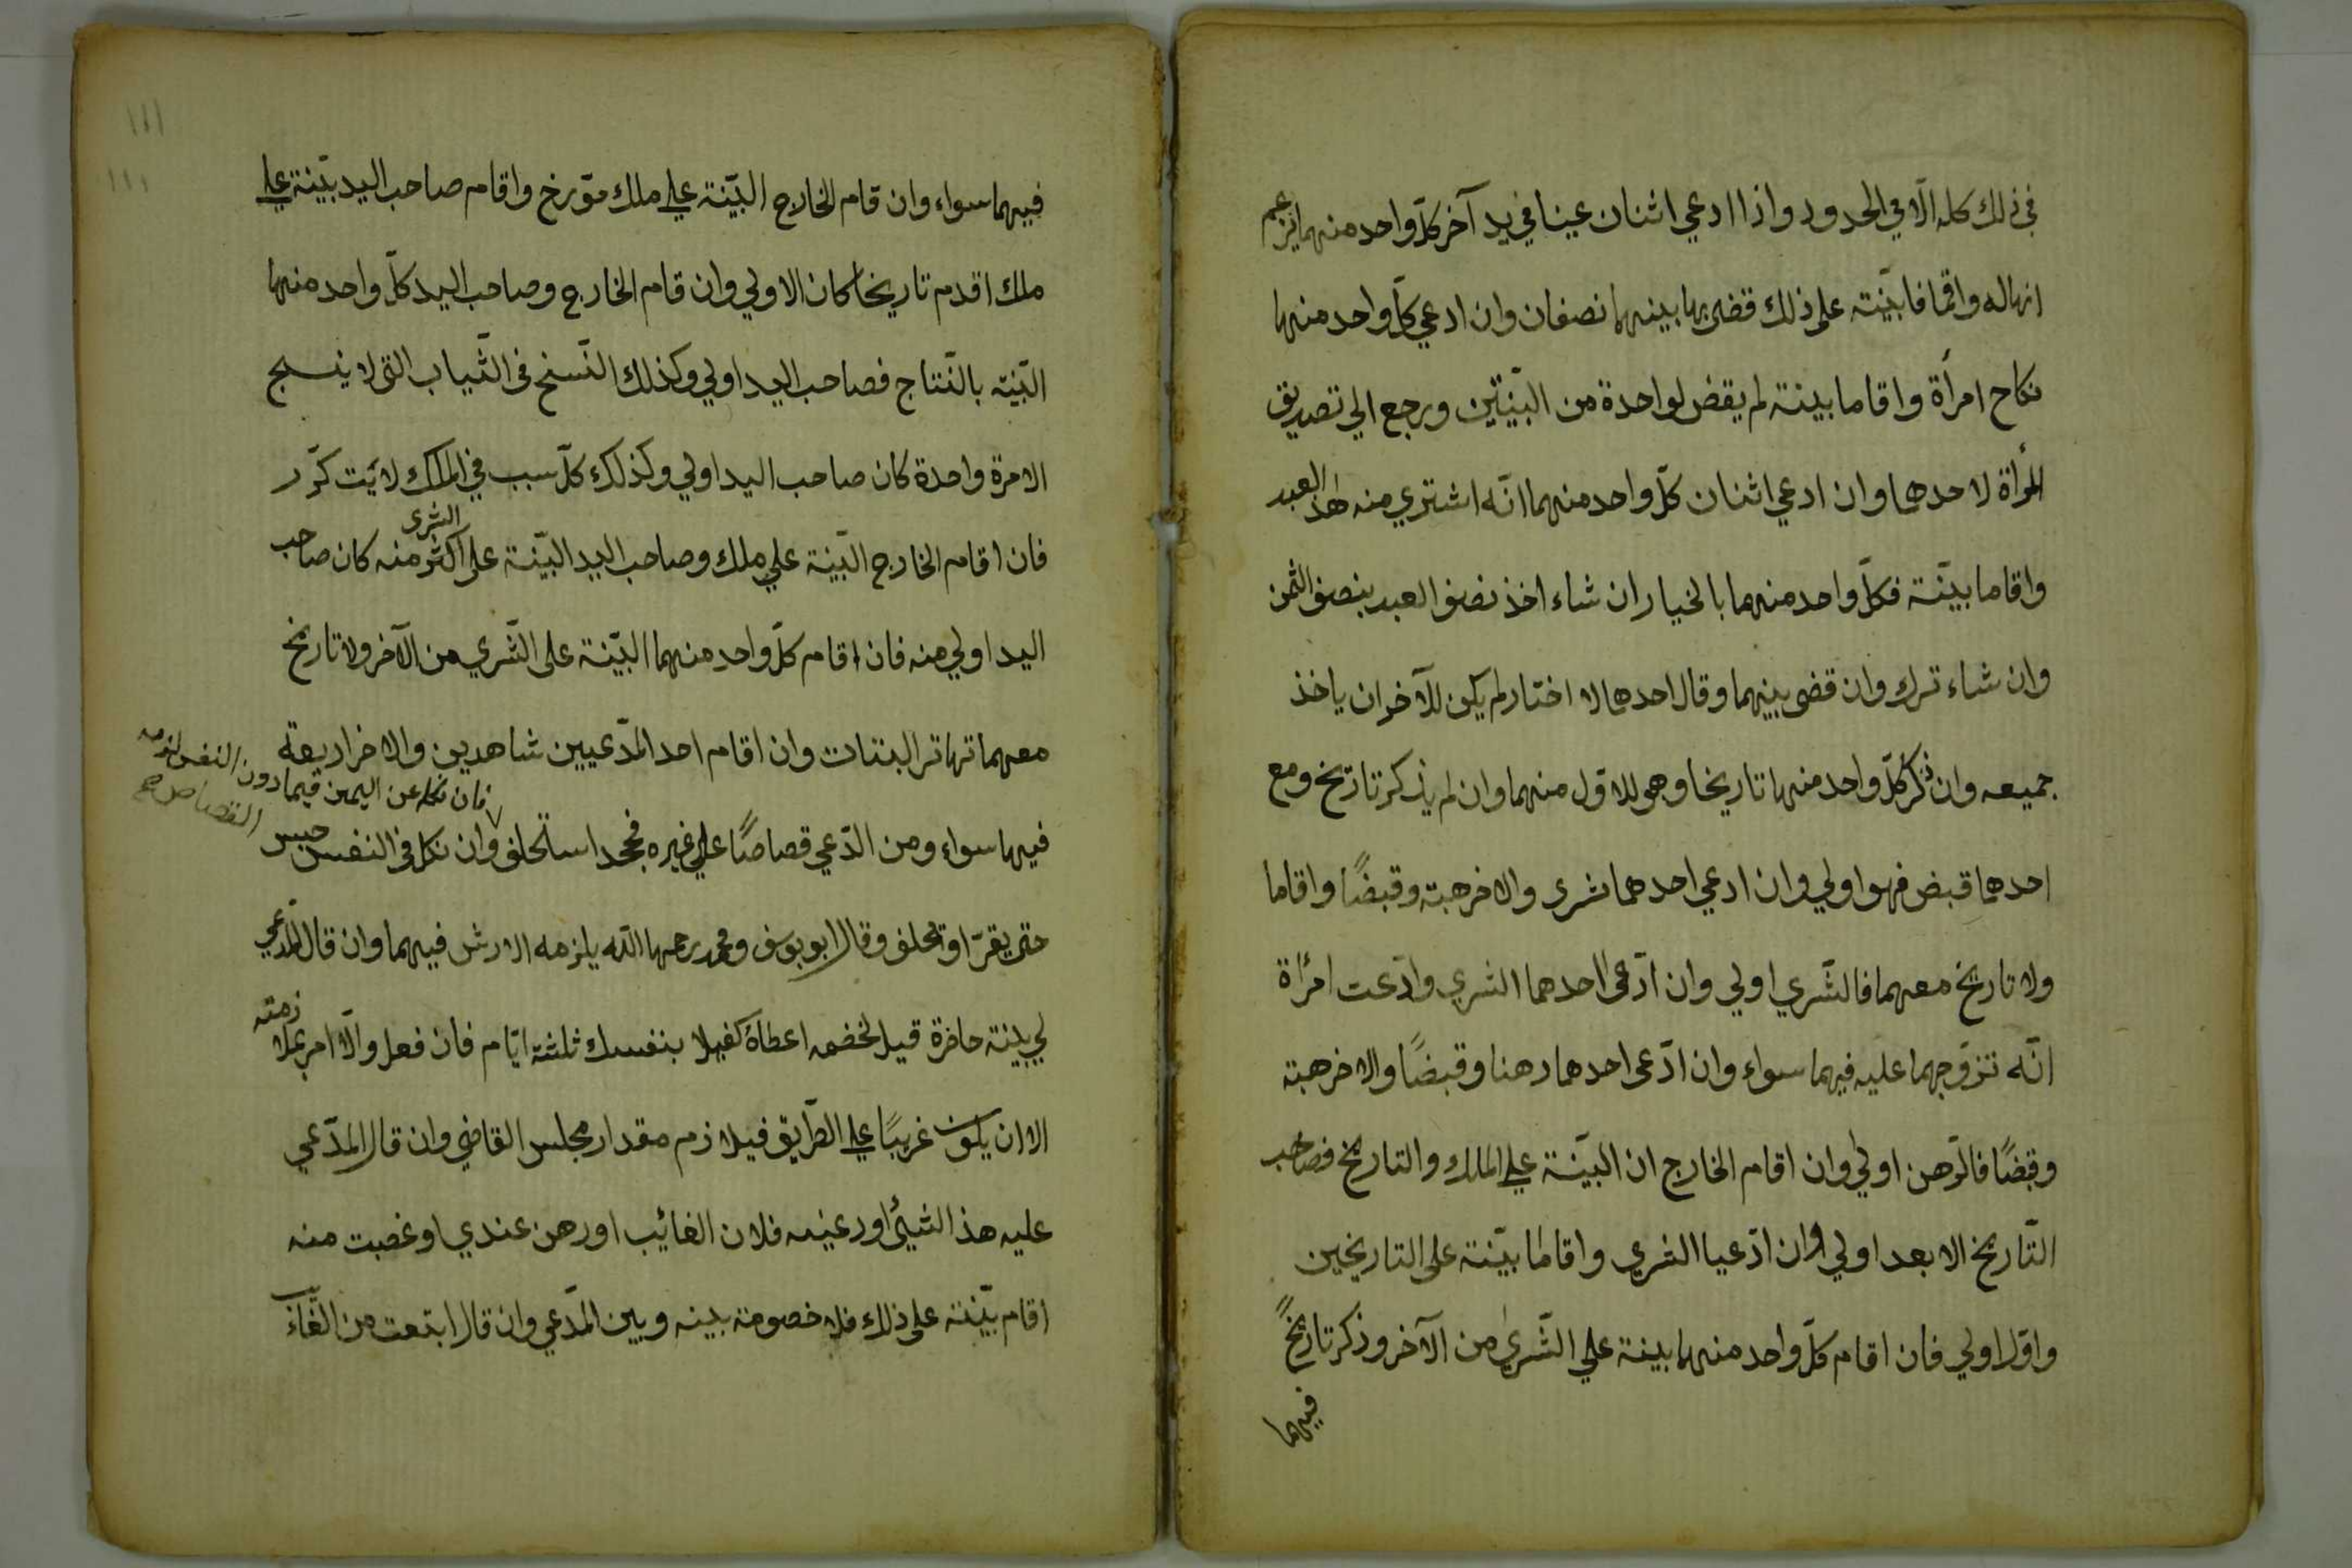 في ذلك كله الّا في الحدود واذا ادعي اثنان عينا في يد آخر كلّ واحد منهما يزعم
انهاله واقاما بيّنته على ذلك قضى بها بينهما نصفان وان ادعي كلّ واحد منهما
نكاح امرأة واقاما بينة لم يقض لواحدة من البيّنتين ورجع الي تصديق
المرأة لاحدهما وان ادعي اثنان كلّ واحد منهما انّه اشتري منه هذ العبد
واقاما بيّنة فكلّ واحد منهما بالخيار ان شاء اخذ نصف العبد بنصف الثمن
وان شاء ترك وان قضى بينهما وقال احدهما لا اختار لم يكن للآخر ان ياخذ
جميعه وان ذكر كلّ واحد منهما تاريخا وهو للاوّل منهما وان لم يذكر تاريخ ومع
احدهما قبض فهو اولي وان ادعي احدهما شرى والاخر هبته وقبضًا واقاما
ولا تاريخ معهما فالشّري اولي وان ادّعى احدهما الشري وادّعت امرأة
انّه تزوّجها عليه فيهما سواء وان ادّعى احدهما رهنا وقبضًا والاخر هبته
وقبضًا فالرّهن اولي وان اقام الخارج ان البيّنة علي الملك والتاريخ فصاحب
التّاريخ الابعد اولي وان ادّعيا الشري واقاما بيّنة على التاريخين
واوّل اولي فان اقام كلّ واحد منهما بينة علي الشّري من الآخر وذكر تاريخًا
فيهما
١١١
١١١
فيهما سواء وان قام الخارج البيّنة علي ملك مؤرخ واقام صاحب اليد بيّنة علي
ملك اقدم تاريخا كان الاولي وان قام الخارج وصاحب اليد كلّ واحد منهما
البيّنه بالنّتاج فصاحب اليد اولي وكذلك النّسخ في الثّياب التى لا ينسج
الامرة واحدة كان صاحب اليد اولي وكذلك كلّ سبب في الملك لا يتكرّر
فان اقام الخارج البيّنة علي ملك وصاحب اليد البيّنة على اكثر منه كان صاحب
الشرى
اليد اولي منه فان اقام كلّ واحد منهما البيّنة على الشّري من الآخر ولا تاريخ
معهما تهاتر البنتات وان اقام احد المدّعيين شاهدين والاخر اربعة
فان نكله عن اليمين فيما دون النفس لزمه
القصاص صح
فيهما سواء ومن ادّعي قصاصًا علي غيره فجحد استحلف وان نكل في النفس حبس
حتى يقرّ او يحلف وقال ابو يوسف ومحمد رحمهما الله يلزمه الارش فيهما وان قال المدّعي
لي بينة حاضرة قيل لخصمه اعطاه كفيلا بنفسك ثلثة ايّام فان فعل والّا امر بملازمته
الا ان يكون غريبًا علي الطّريق فيلازم مقدار مجلس القاضي وان قال المدّعي
عليه هذ الشيئ اودعنيه فلان الغائب او رهن عندي او غصبت منه
اقام بيّنته على ذلك فلا خصومة بينه وبين المدّعي وان قال ابتعت من الغائب